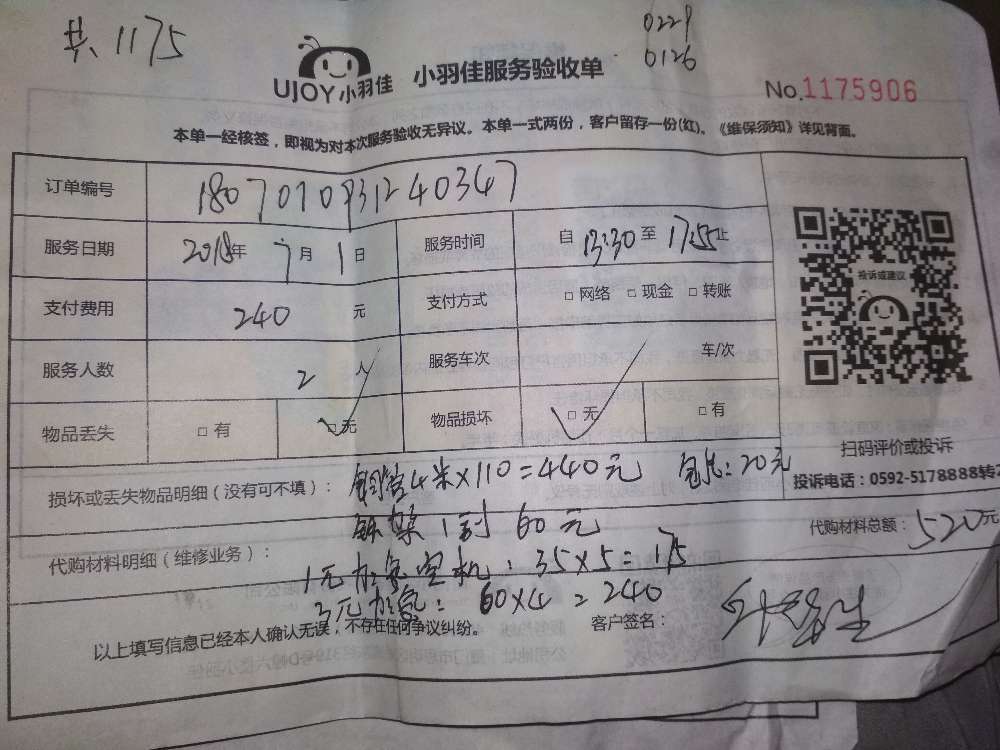 共 1175
0229
0126
UJOY小羽佳 小羽佳服务验收单
No.1175906
本单一经核签，即视为对本次服务验收无异议。本单一式两份，客户留存一份(红)。《维保须知》详见背面。
订单编号 1807010931240347
服务日期 2018年 7月 1日 服务时间 自 13:30 至 17:55止
支付费用 240 元 支付方式 □ 网络 □ 现金 □ 转账
投诉或建议
服务人数 2 人 服务车次 车/次
物品丢失 □ 有 □无 物品损坏 □ 无 □ 有
扫码评价或投诉
投诉电话：0592-5178888转2
损坏或丢失物品明细（没有可不填）： 铜管4米×110=440元 20元
1副 60元
代购材料明细（维修业务）：
代购材料总额： 520元
空机：35×5=175
60×4=240
以上填写信息已经本人确认无误，不存在任何争议纠纷。 客户签名：